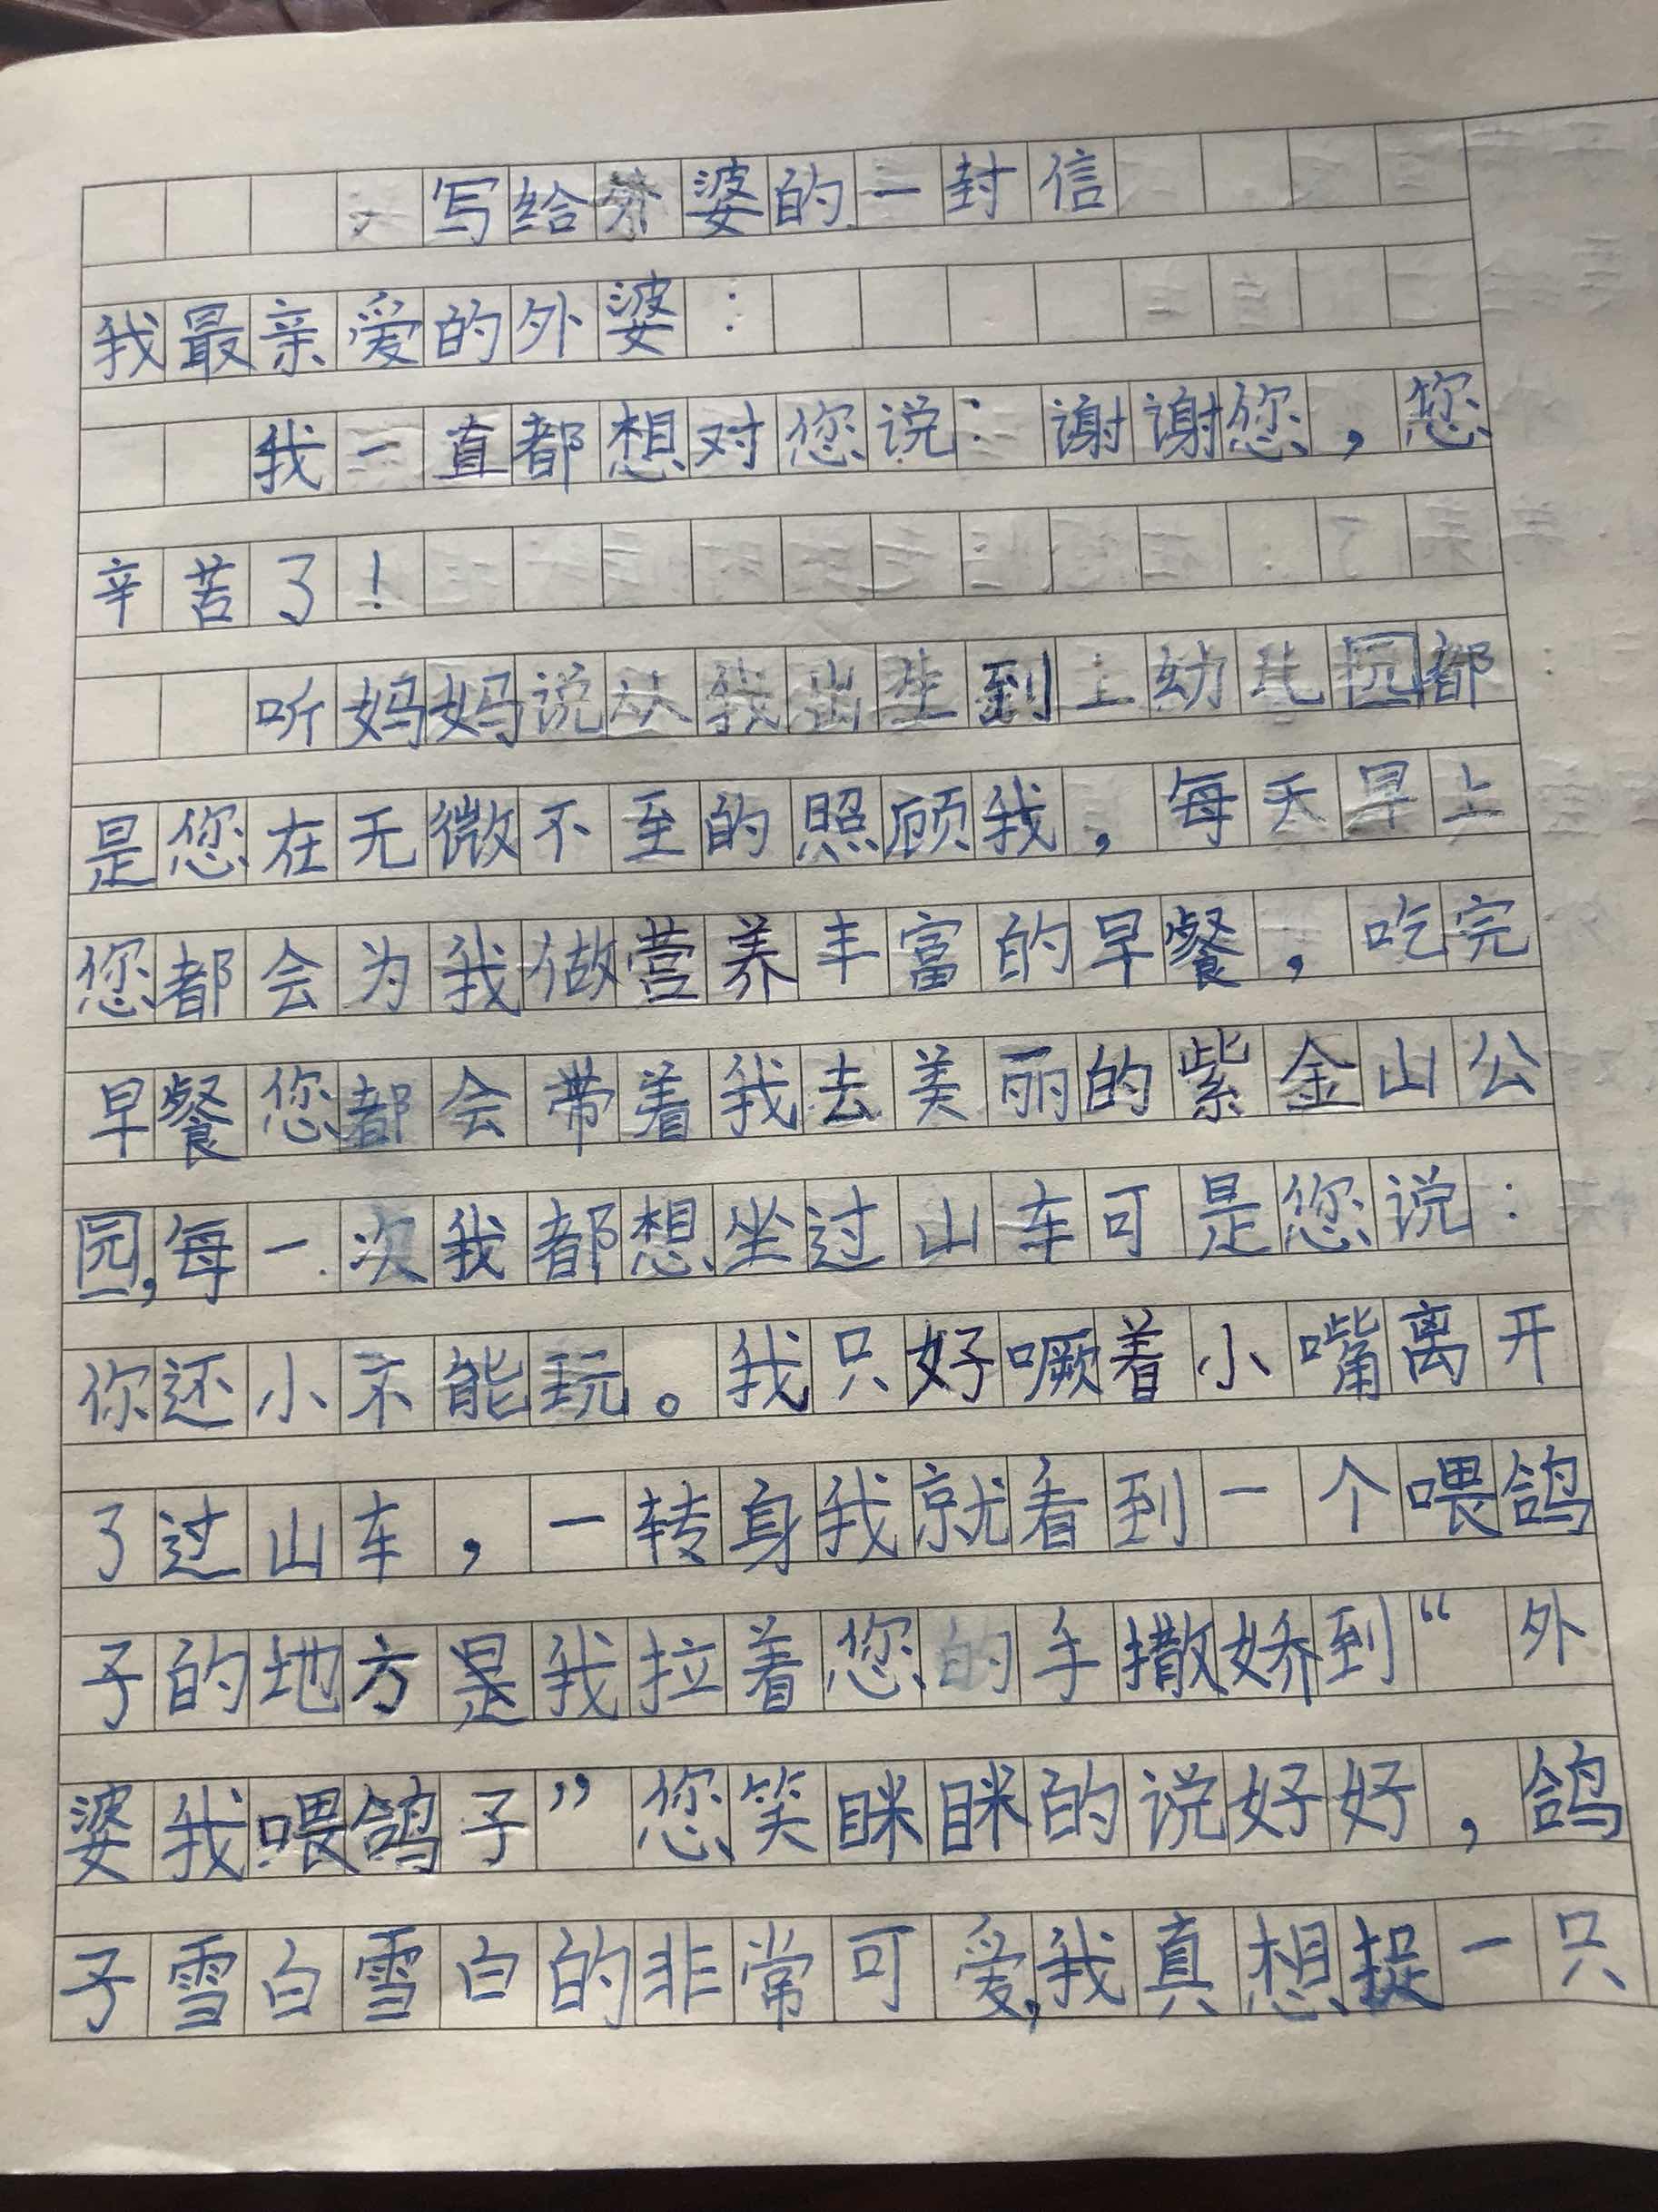 写给外婆的一封信
我最亲爱的外婆:
我一直都想对您说:谢谢您,您
辛苦了!
听妈妈说从我出生到上幼儿园都
是您在无微不至的照顾我,每天早上
您都会为我做营养丰富的早餐,吃完
早餐您都会带着我去美丽的紫金山公
园,每一次我都想坐过山车可是您说:
你还小不能玩。我只好噘着小嘴离开
了过山车,一转身我就看到一个喂鸽
子的地方是我拉着您的手撒娇到“外
婆我喂鸽子”您笑眯眯的说好好,鸽
子雪白雪白的非常可爱,我真想捉一只